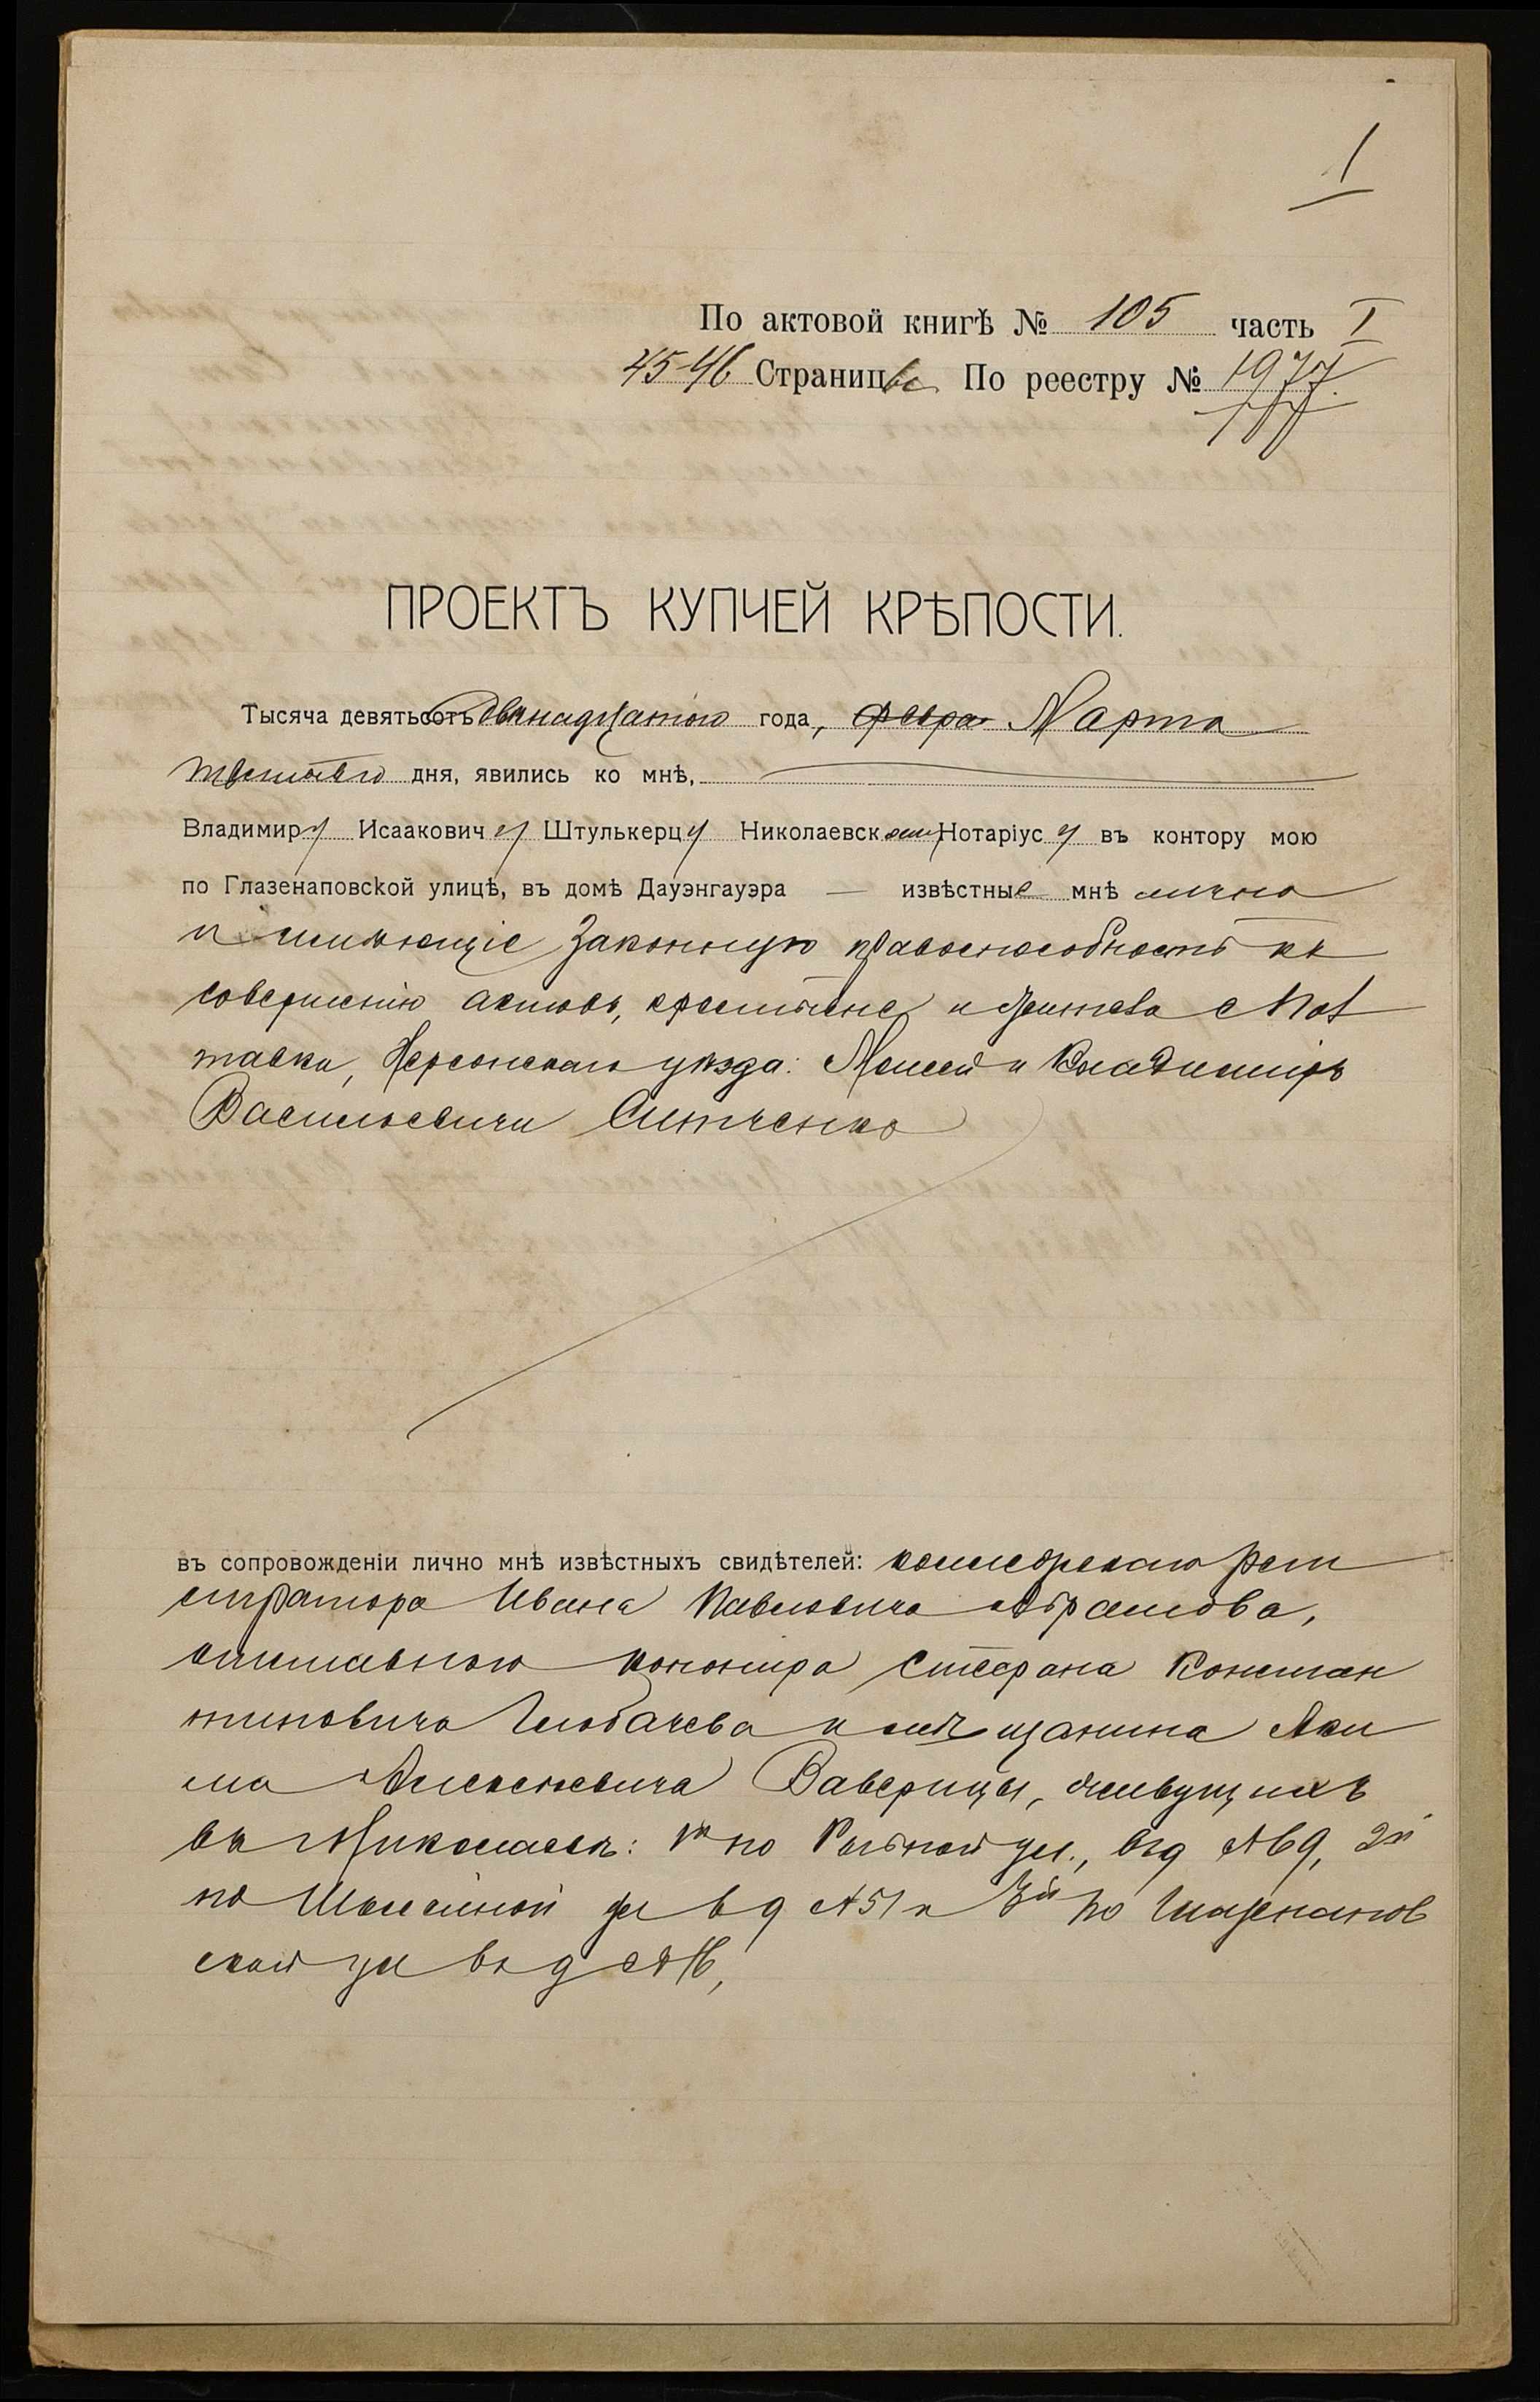 1
По актовой книгѣ № 105 часть I
45-46 Страницѣ По реестру № 1977.
ПРОЕКТЪ КУПЧЕЙ КРѢПОСТИ.
Тысяча девятьсотъ двѣнадцатаго года, Февра Марта
дня, явились ко мнѣ,
Владимиру Исааковичу Штулькерцу Николаевскому Нотаріусу въ контору мою
по Глазенаповской улицѣ, въ домѣ Дауэнгауэра — извѣстные мнѣ лично
и имѣющіе законную правоспособность къ
совершенію актовъ, крестьяне
тавки, Херсонскаго уѣзда: Моисей и Владиміръ
Васильевичи
въ сопровожденіи лично мнѣ извѣстныхъ свидѣтелей: коллежскаго реги
стратора Ивана Павловича Абрамова,
отставного Стефана Констан
тиновича и мѣщанина Аки
ма Алексѣевича Ваверицы, живущихъ
въ Николаевѣ: 1й по Рыбной ул., въ д № 69, 2й
по ул в д № 51 и 3й по Глазенапов
ской ул въ д №